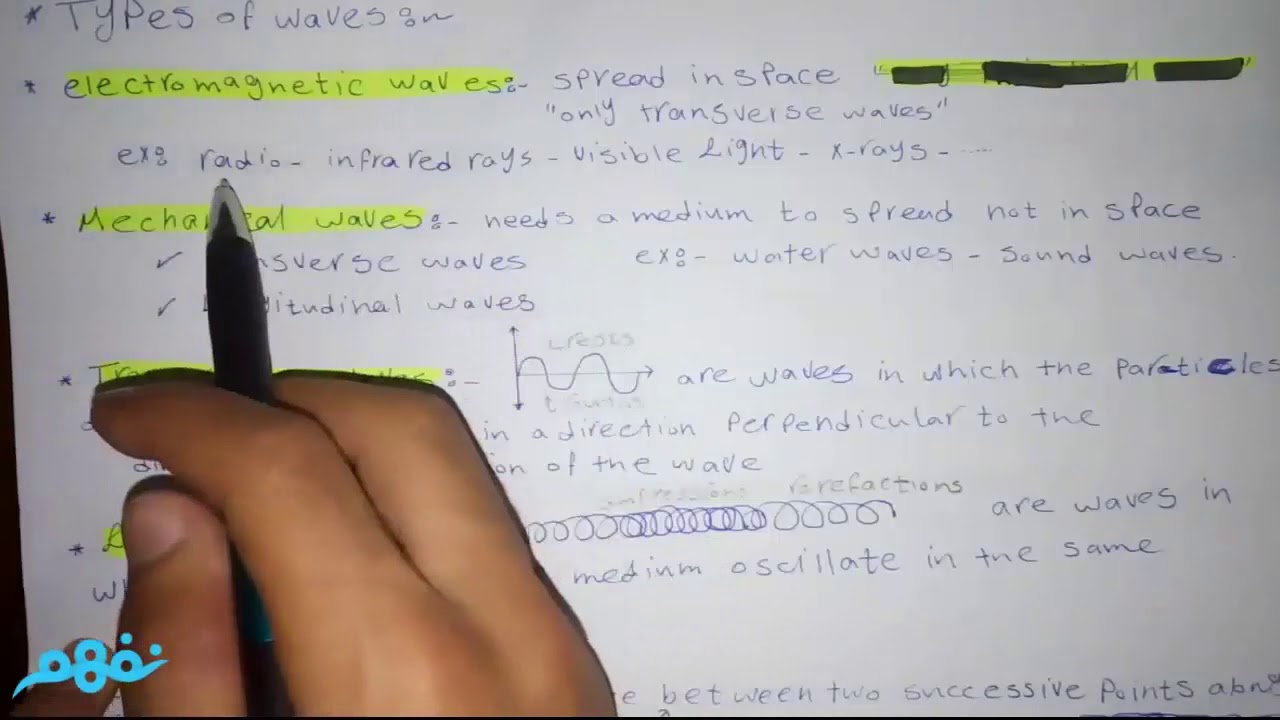 * Types of waves:~
* electromagnetic waves:- spread in space
"only transverse waves"
ex: radio - infrared rays - visible light - x-rays - ....
* Mechanical waves:- needs a medium to spread not in space
✓ nsverse waves ex:- water waves - sound waves.
✓ itudinal waves
crests
* :- are waves in which the particles
in a direction perpendicular to the
on of the wave
rarefactions
* are waves in
medium oscillate in the same
between two successive points along
نفهم